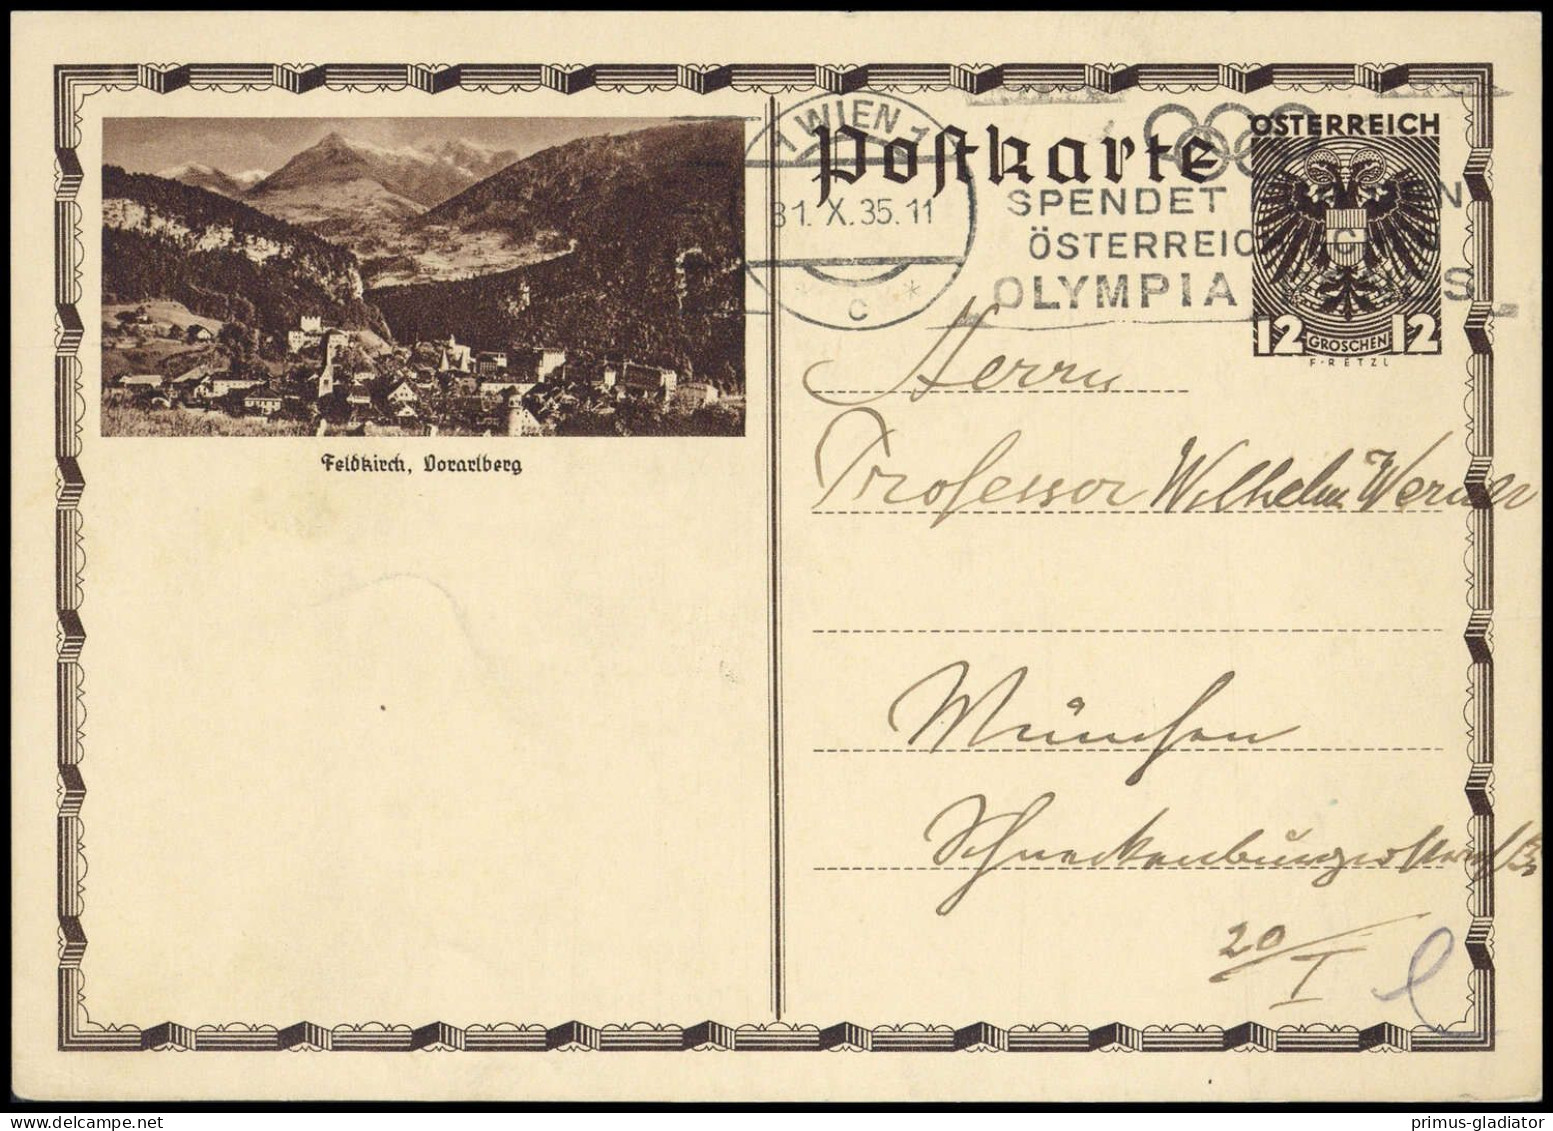 Postkarte
1 WIEN 1
31. X. 35. 11
* C *
SPENDET
ÖSTERREIC
OLYMPIA
ÖSTERREICH
12 GROSCHEN 12
F·RETZL
Feldkirch, Vorarlberg
Herrn
Professor Wilhelm Werner
München
Schneckenburgerstraße
20/I
primus-gladiator